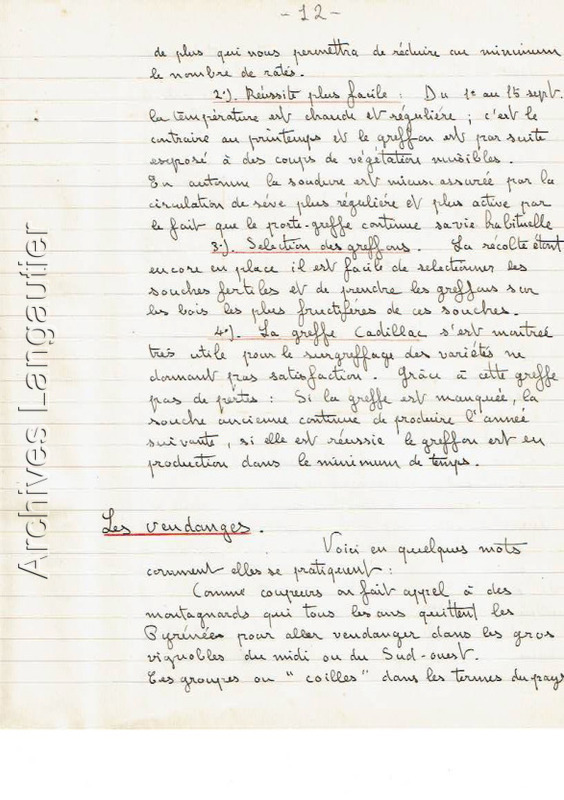 - 12 -
de plus qui nous permettra de réduire au minimum
le nombre de ratés.
2°). Réussite plus facile : Du 1e au 15 sept.
la température est chaude et régulière ; c'est le
contraire au printemps et le greffon est par suite
exposé à des coups de végétation nuisibles.
En automne la soudure est mieux assurée par la
circulation de séve plus régulière et plus active par
le fait que le porte-greffe continue sa vie habituelle
3°). Sélection des greffons. La récolte étant
encore en place il est facile de selectionner les
souches fertiles et de prendre les greffons sur
les bois les plus fructifères de ces souches.
4°). La greffe Cadillac s'est montrée
très utile pour le surgreffage des variétés ne
donnant pas satisfaction. Grâce à cette greffe
pas de pertes : Si la greffe est manquée, la
souche ancienne continue de produire l'année
suivante, si elle est réussie le greffon est en
production dans le minimum de temps.
Les vendanges.
Voici en quelques mots
comment elles se pratiquent :
Comme coupeurs on fait appel à des
montagnards qui tous les ans quittent les
Pyrénées pour aller vendanger dans les gros
vignobles du midi ou du Sud-ouest.
Ces groupes ou "coilles" dans les termes du pays
Archives Langautier